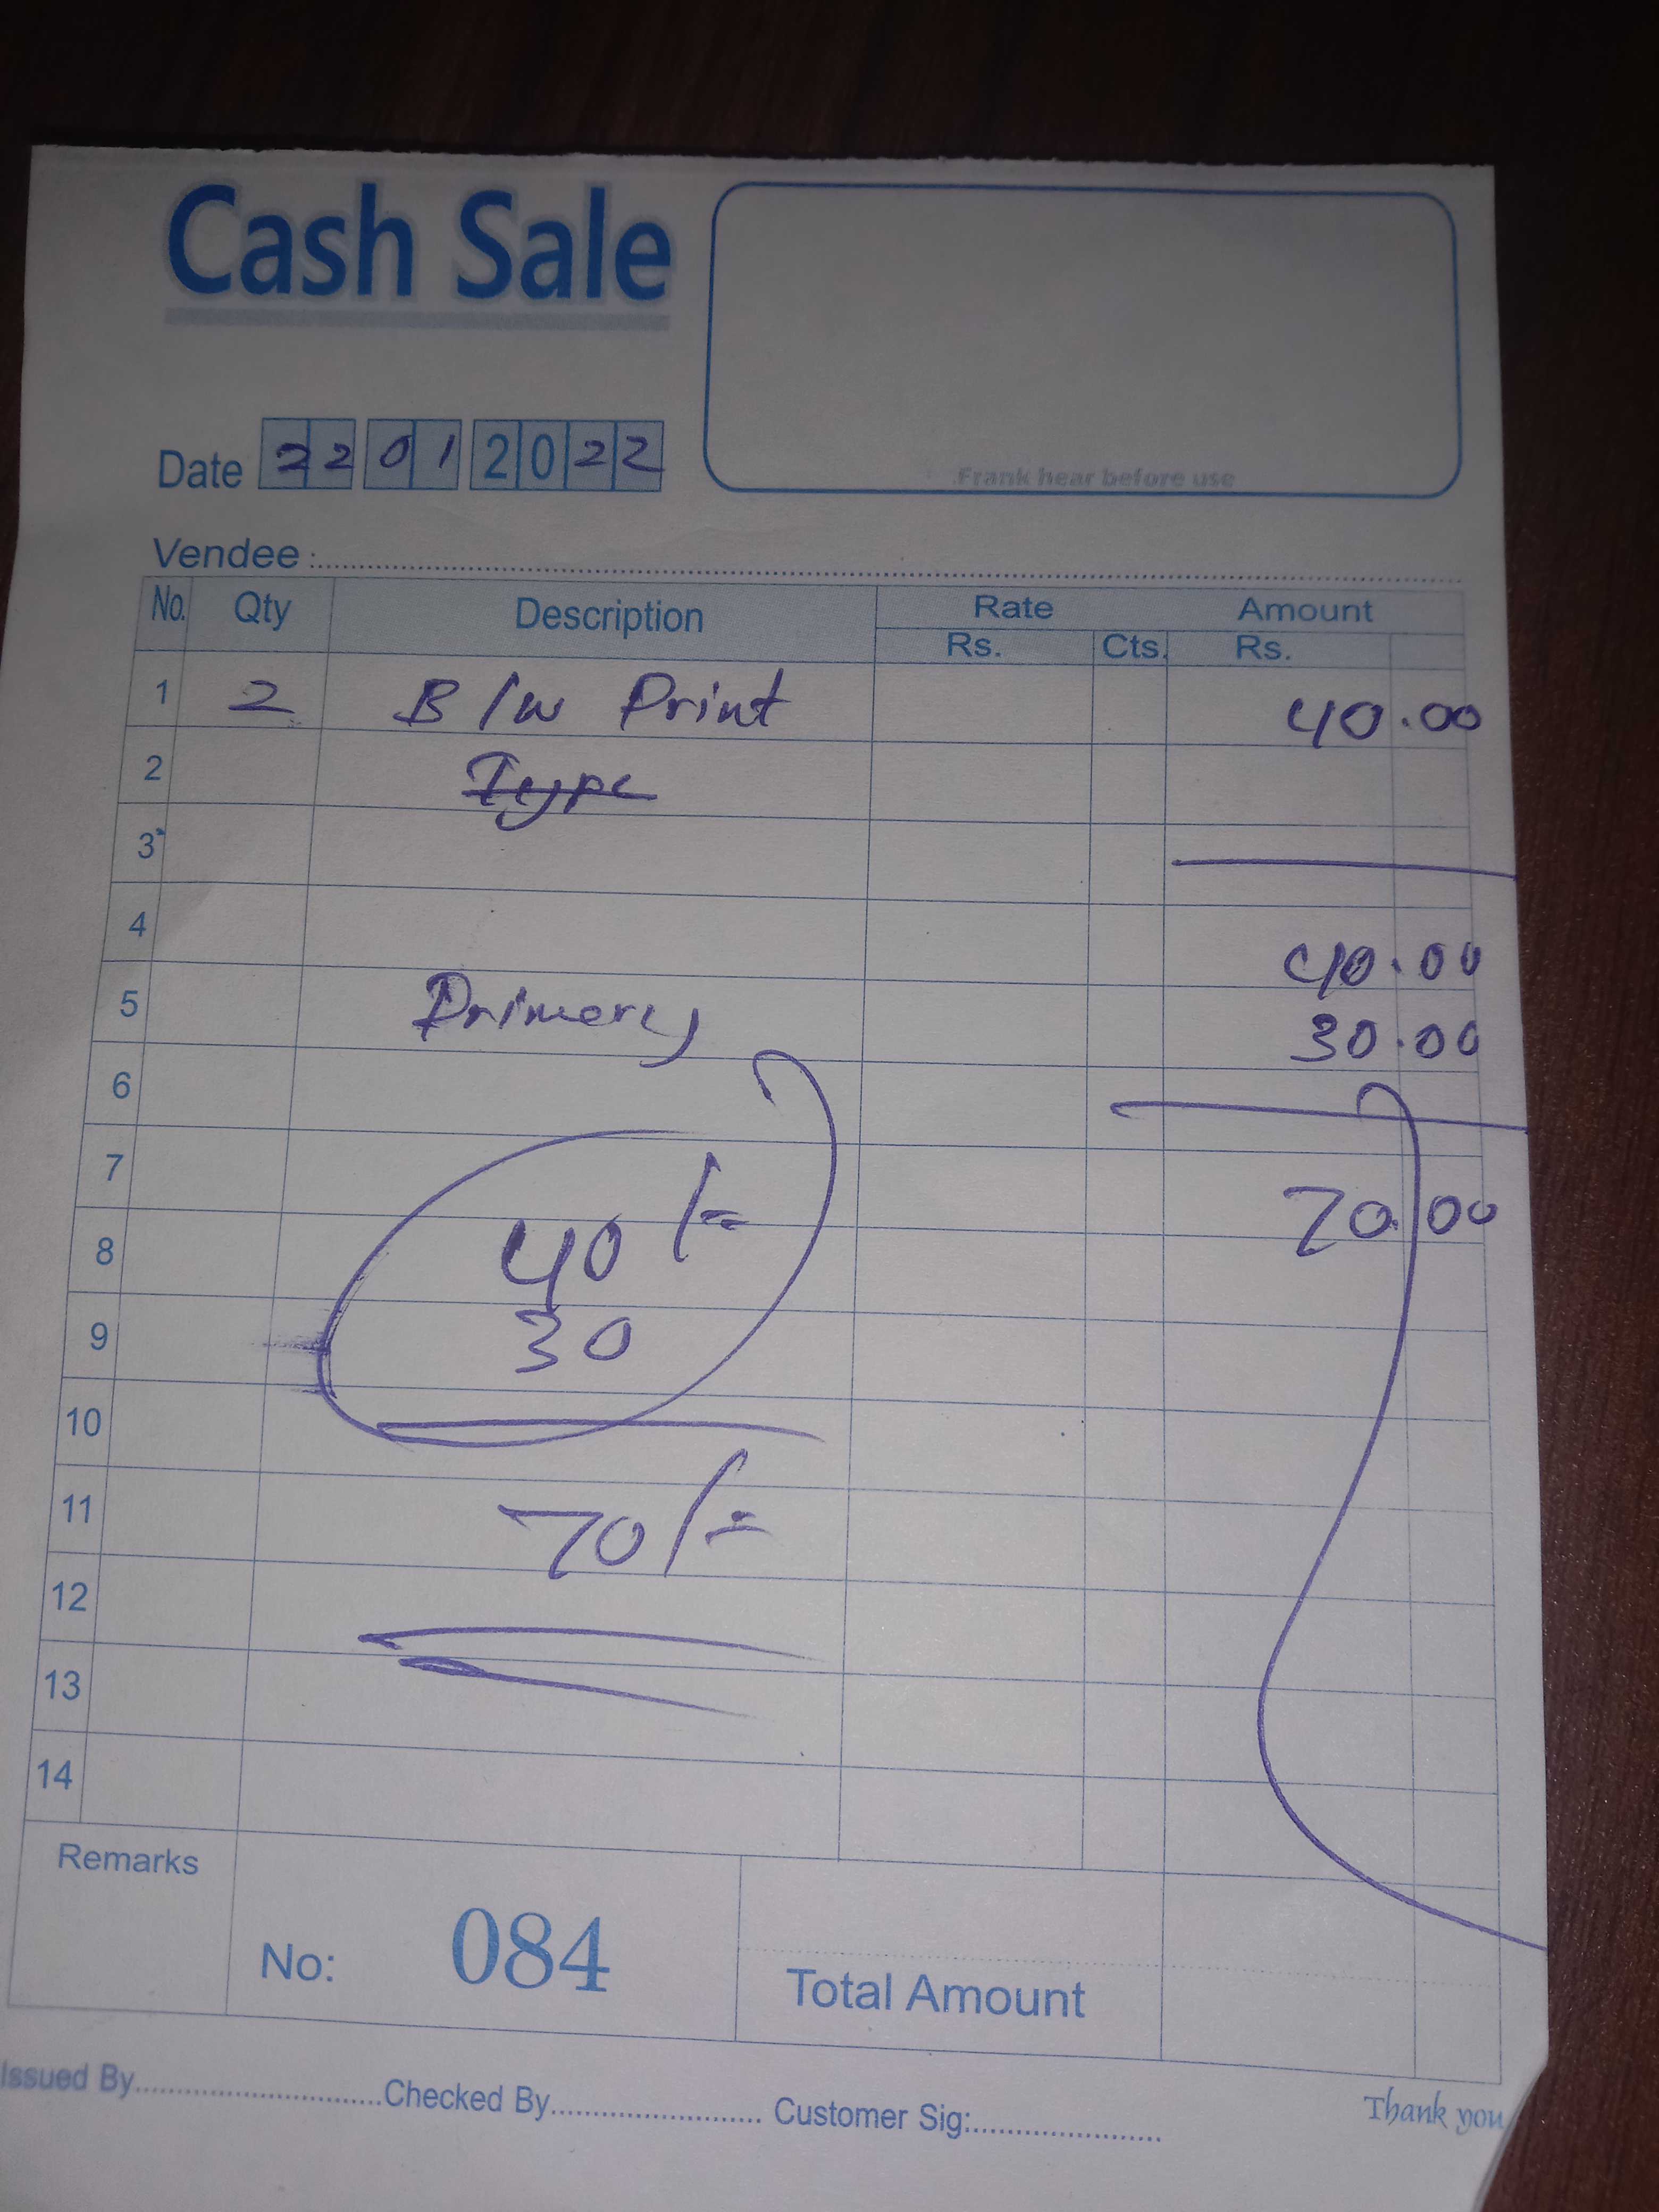 Cash Sale
Frank hear before use
Date 22 01 2022
Vendee :
No. Qty Description Rate Amount
Rs. Cts. Rs.
1 2 B/W Print 40.00
2 Type
3
4 40.00
5 Primery 30.00
6
7 70.00
8 40/=
9 30
10
11 70/=
12
13
14
Remarks
No: 084
Total Amount
Issued By Checked By Customer Sig:
Thank you